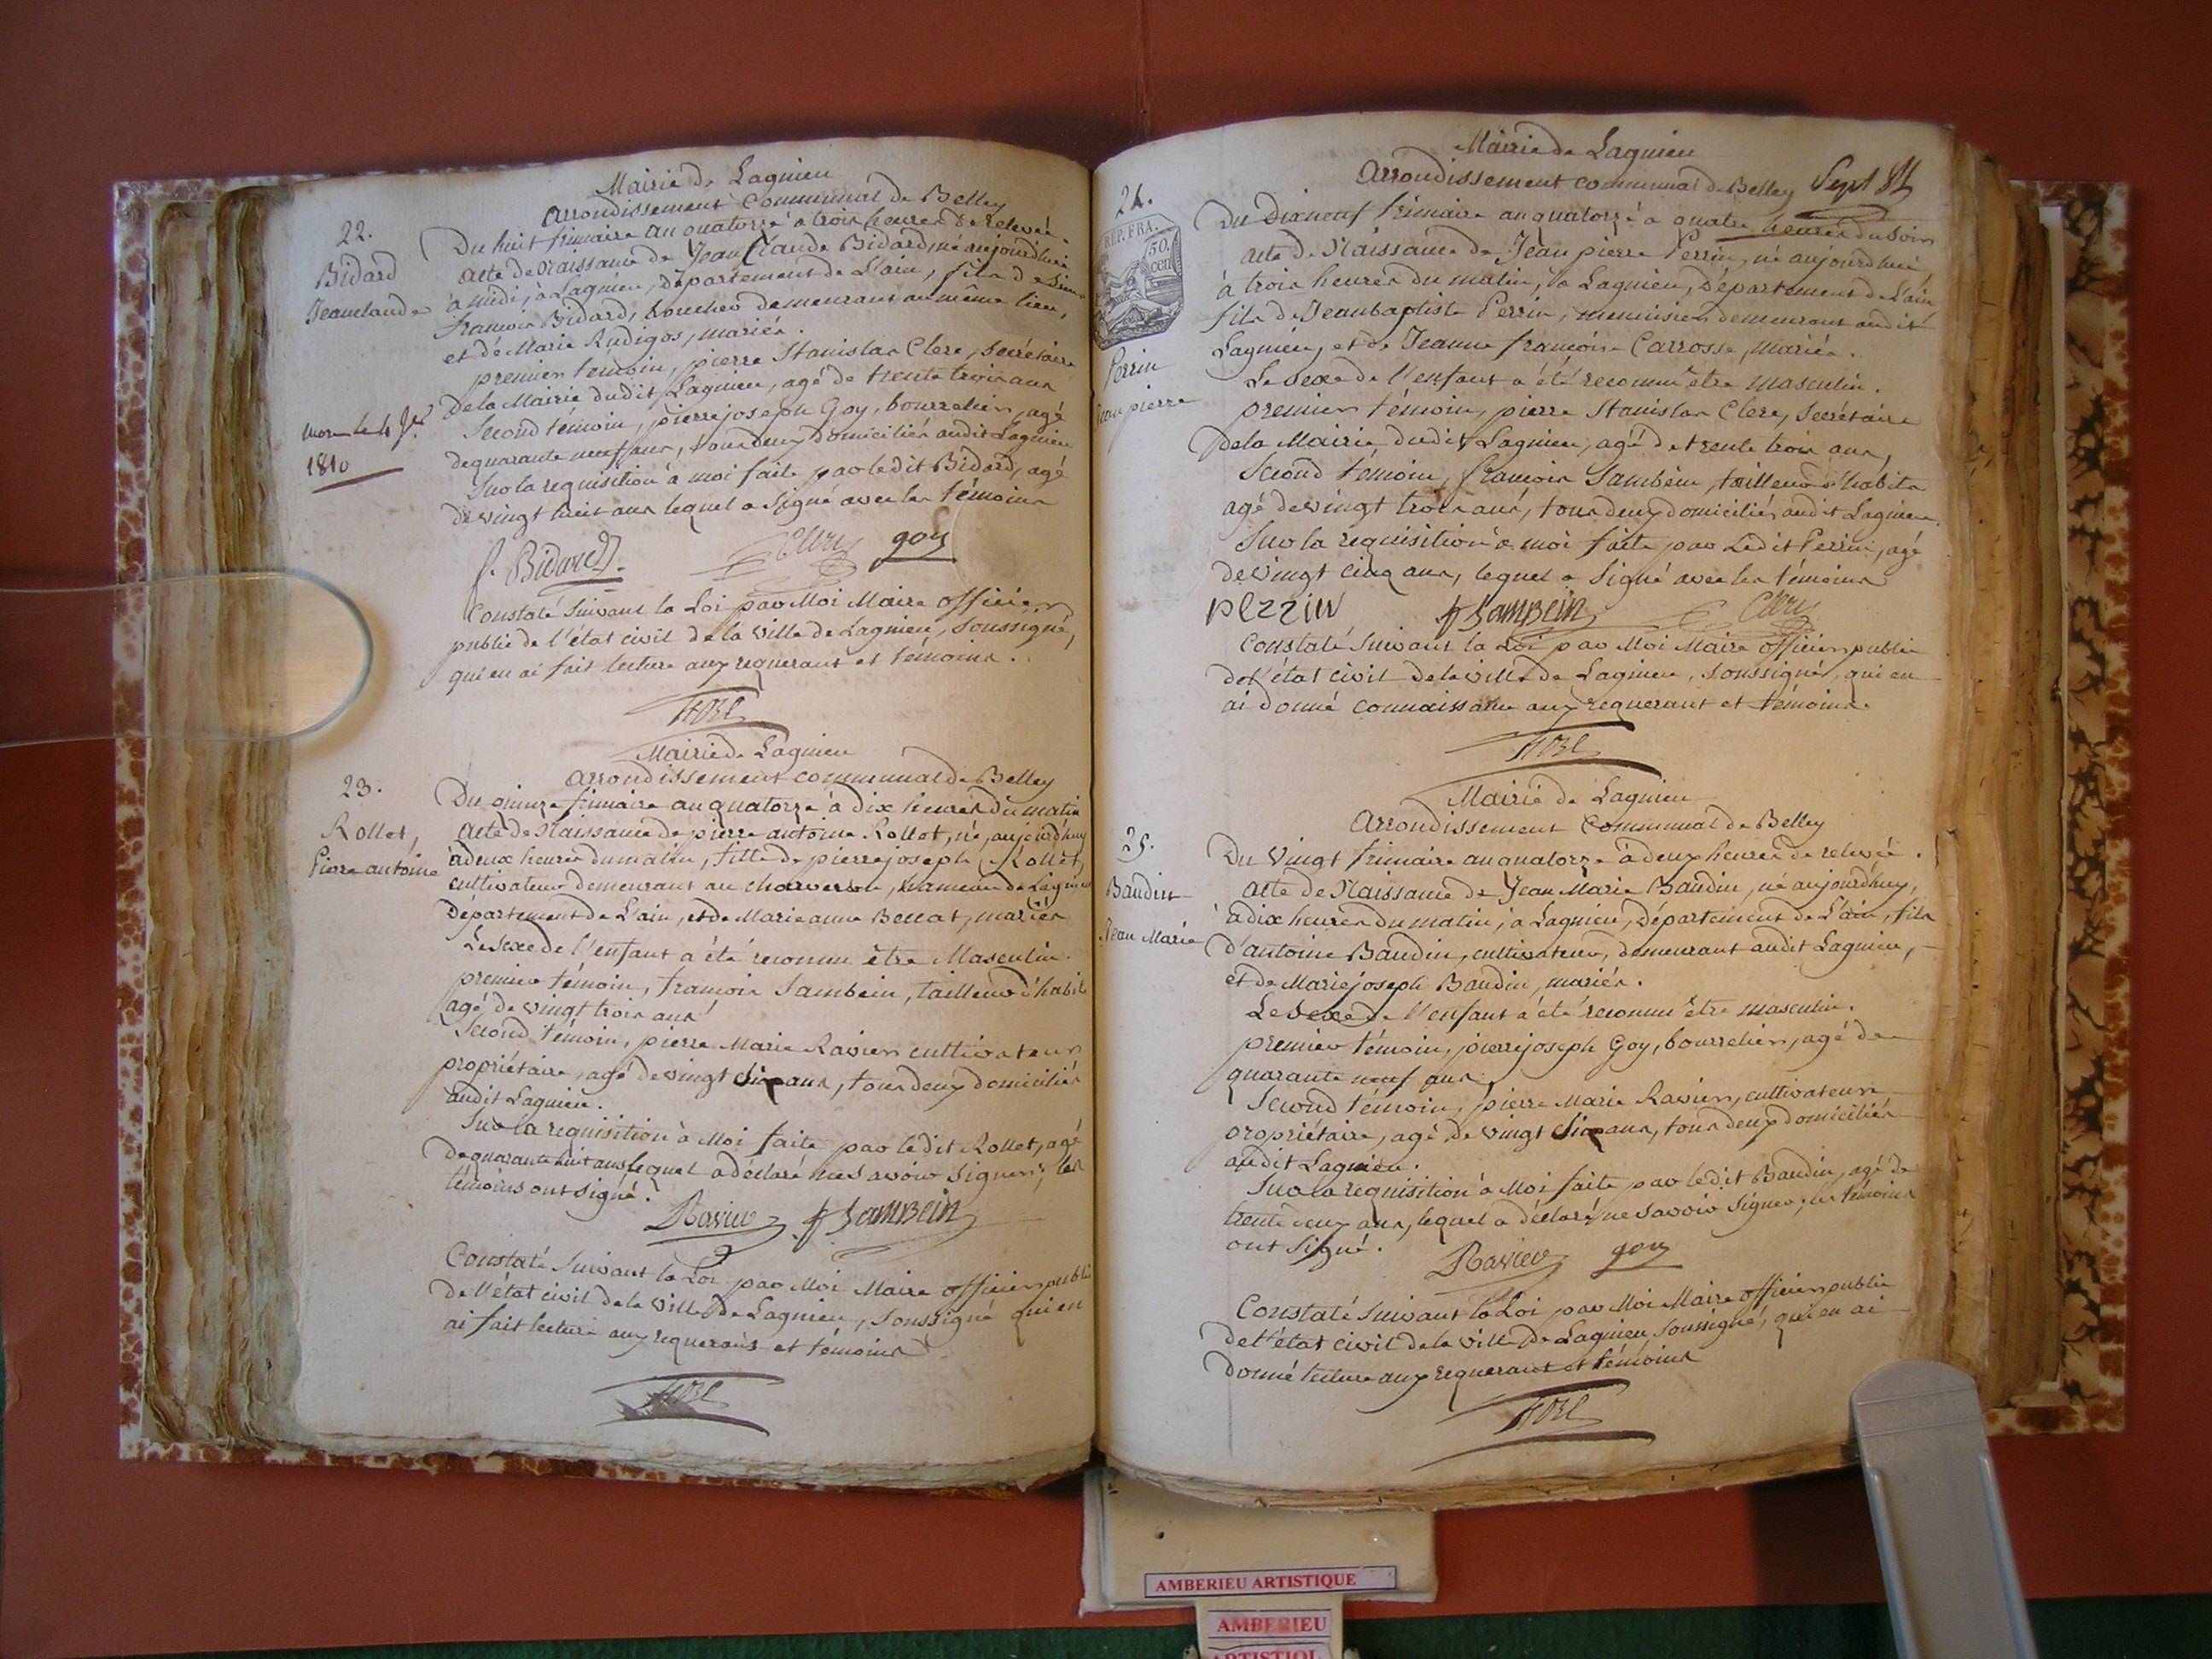 Mairie de Lagnieu
arrondissement Communal de Belley
22.
Bidard
Jeanclaude
Du huit frimaire an quatorze à trois heures de relevée.
acte de Naissance de Jean Claude Bidard, né aujourd'hui
à midi, à Lagnieu, Département de L'ain, fils de
francois Bidard, boucher demeurant au même lieu,
et de Marie Rudigos, mariés.
premier témoin, pierre Stanislas Clerc, Secrétaire
de la Mairie dudit Lagnieu, agé de trente trois ans
Second témoin, pierre joseph Goy, bourrelier, agé
de quarante neuf ans, tous deux domiciliés audit Lagnieu
mort le 4
1810
Sur la requisition à moi faite par ledit Bidard, agé
de vingt huit ans lequel a Signé avec les témoins
f. Bidard Clerc goy
Constaté Suivant la Loi par Moi Maire officier
public de l'état civil de la ville de Lagnieu, Soussigné,
qui en ai fait lecture aux requerant et témoins.
Mairie de Lagnieu
arrondissement communal de Belley
23.
Rollet,
Pierre antoine
Du quinze frimaire an quatorze à dix heures du matin
acte de Naissance de pierre antoine Rollet, né, aujourd'huy
à deux heures du matin, fils de pierre joseph Rollet,
cultivateur demeurant au charveron, hameau de Lagnieu
Département de L'ain, et de Marie anne Bellat, mariés
Le Sexe de l'enfant a été reconnu être Masculin.
premier témoin, francois Sambein, tailleur d'habits
agé de vingt trois ans
Second témoin, pierre Marie Ravier cultivateur
propriétaire, agé de vingt Six ans, tous deux domiciliés
audit Lagnieu.
Sur la requisition à Moi faite par ledit Rollet, agé
de quarante huit ans lequel a déclaré ne Savoir Signer; les
témoins ont signé.
Ravier f Sambein
Constaté Suivant la Loi par Moi Maire officier public
de l'état civil de la ville de Lagnieu, Soussigné qui en
ai fait lecture aux requerans et témoins
Mairie de Lagnieu
arrondissement communal de Belley Sept
24.
REP. FRA.
50.
cen
Perrin
jean pierre
Du Dixneuf frimaire an quatorze à quatre heures du Soir
acte de Naissance de Jean pierre Perrin, né aujourd'hui
à trois heures du matin, à Lagnieu, Département de L'ain
fils de Jean baptiste Perrin, menuisier demeurant audit
Lagnieu, et de Jeanne francoise Carrosse, mariés.
Le sexe de l'enfant a été reconnu être masculin.
premier témoin, pierre Stanislas Clerc, Secrétaire
de la Mairie dudit Lagnieu, agé de trente trois ans,
Second témoin, francois Sambein, tailleur d'habits
agé de vingt trois ans, tous deux domiciliés audit Lagnieu.
Sur la requisition à moi faite par Ledit Perrin, agé
de vingt cinq ans, lequel a Signé avec les témoins
perrin f Sambein Clerc
Constaté Suivant la Loi par Moi Maire officier public
de l'état civil de la ville de Lagnieu, Soussigné, qui en
ai donné connaissance aux requerant et témoins.
Mairie de Lagnieu
arrondissement Communal de Belley
25.
Baudin
Jean Marie
Du Vingt frimaire an quatorze à deux heures de relevée.
acte de Naissance de Jean Marie Baudin, né aujourd'huy,
à dix heures du matin, à Lagnieu, Département de L'ain, fils
d'antoine Baudin, cultivateur, demeurant audit Lagnieu,
et de Marie joseph Baudin, mariés.
Le Sexe de l'enfant a été reconnu être masculin.
premier témoin, pierre joseph Goy, bourrelier, agé de
quarante neuf ans.
Second témoin, pierre Marie Ravier, cultivateur
propriétaire, agé de vingt Six ans, tous deux domiciliés
audit Lagnieu.
Sur la requisition à Moi faite par ledit Baudin, agé de
trente deux ans, lequel a déclaré ne Savoir Signer; les témoins
ont Signé. Ravier goy
Constaté Suivant la Loi par Moi Maire officier public
de l'état civil de la ville de Lagnieu, Soussigné, qui en ai
donné lecture aux requerant et témoins
AMBERIEU ARTISTIQUE
AMBERIEU
ARTISTIQUE